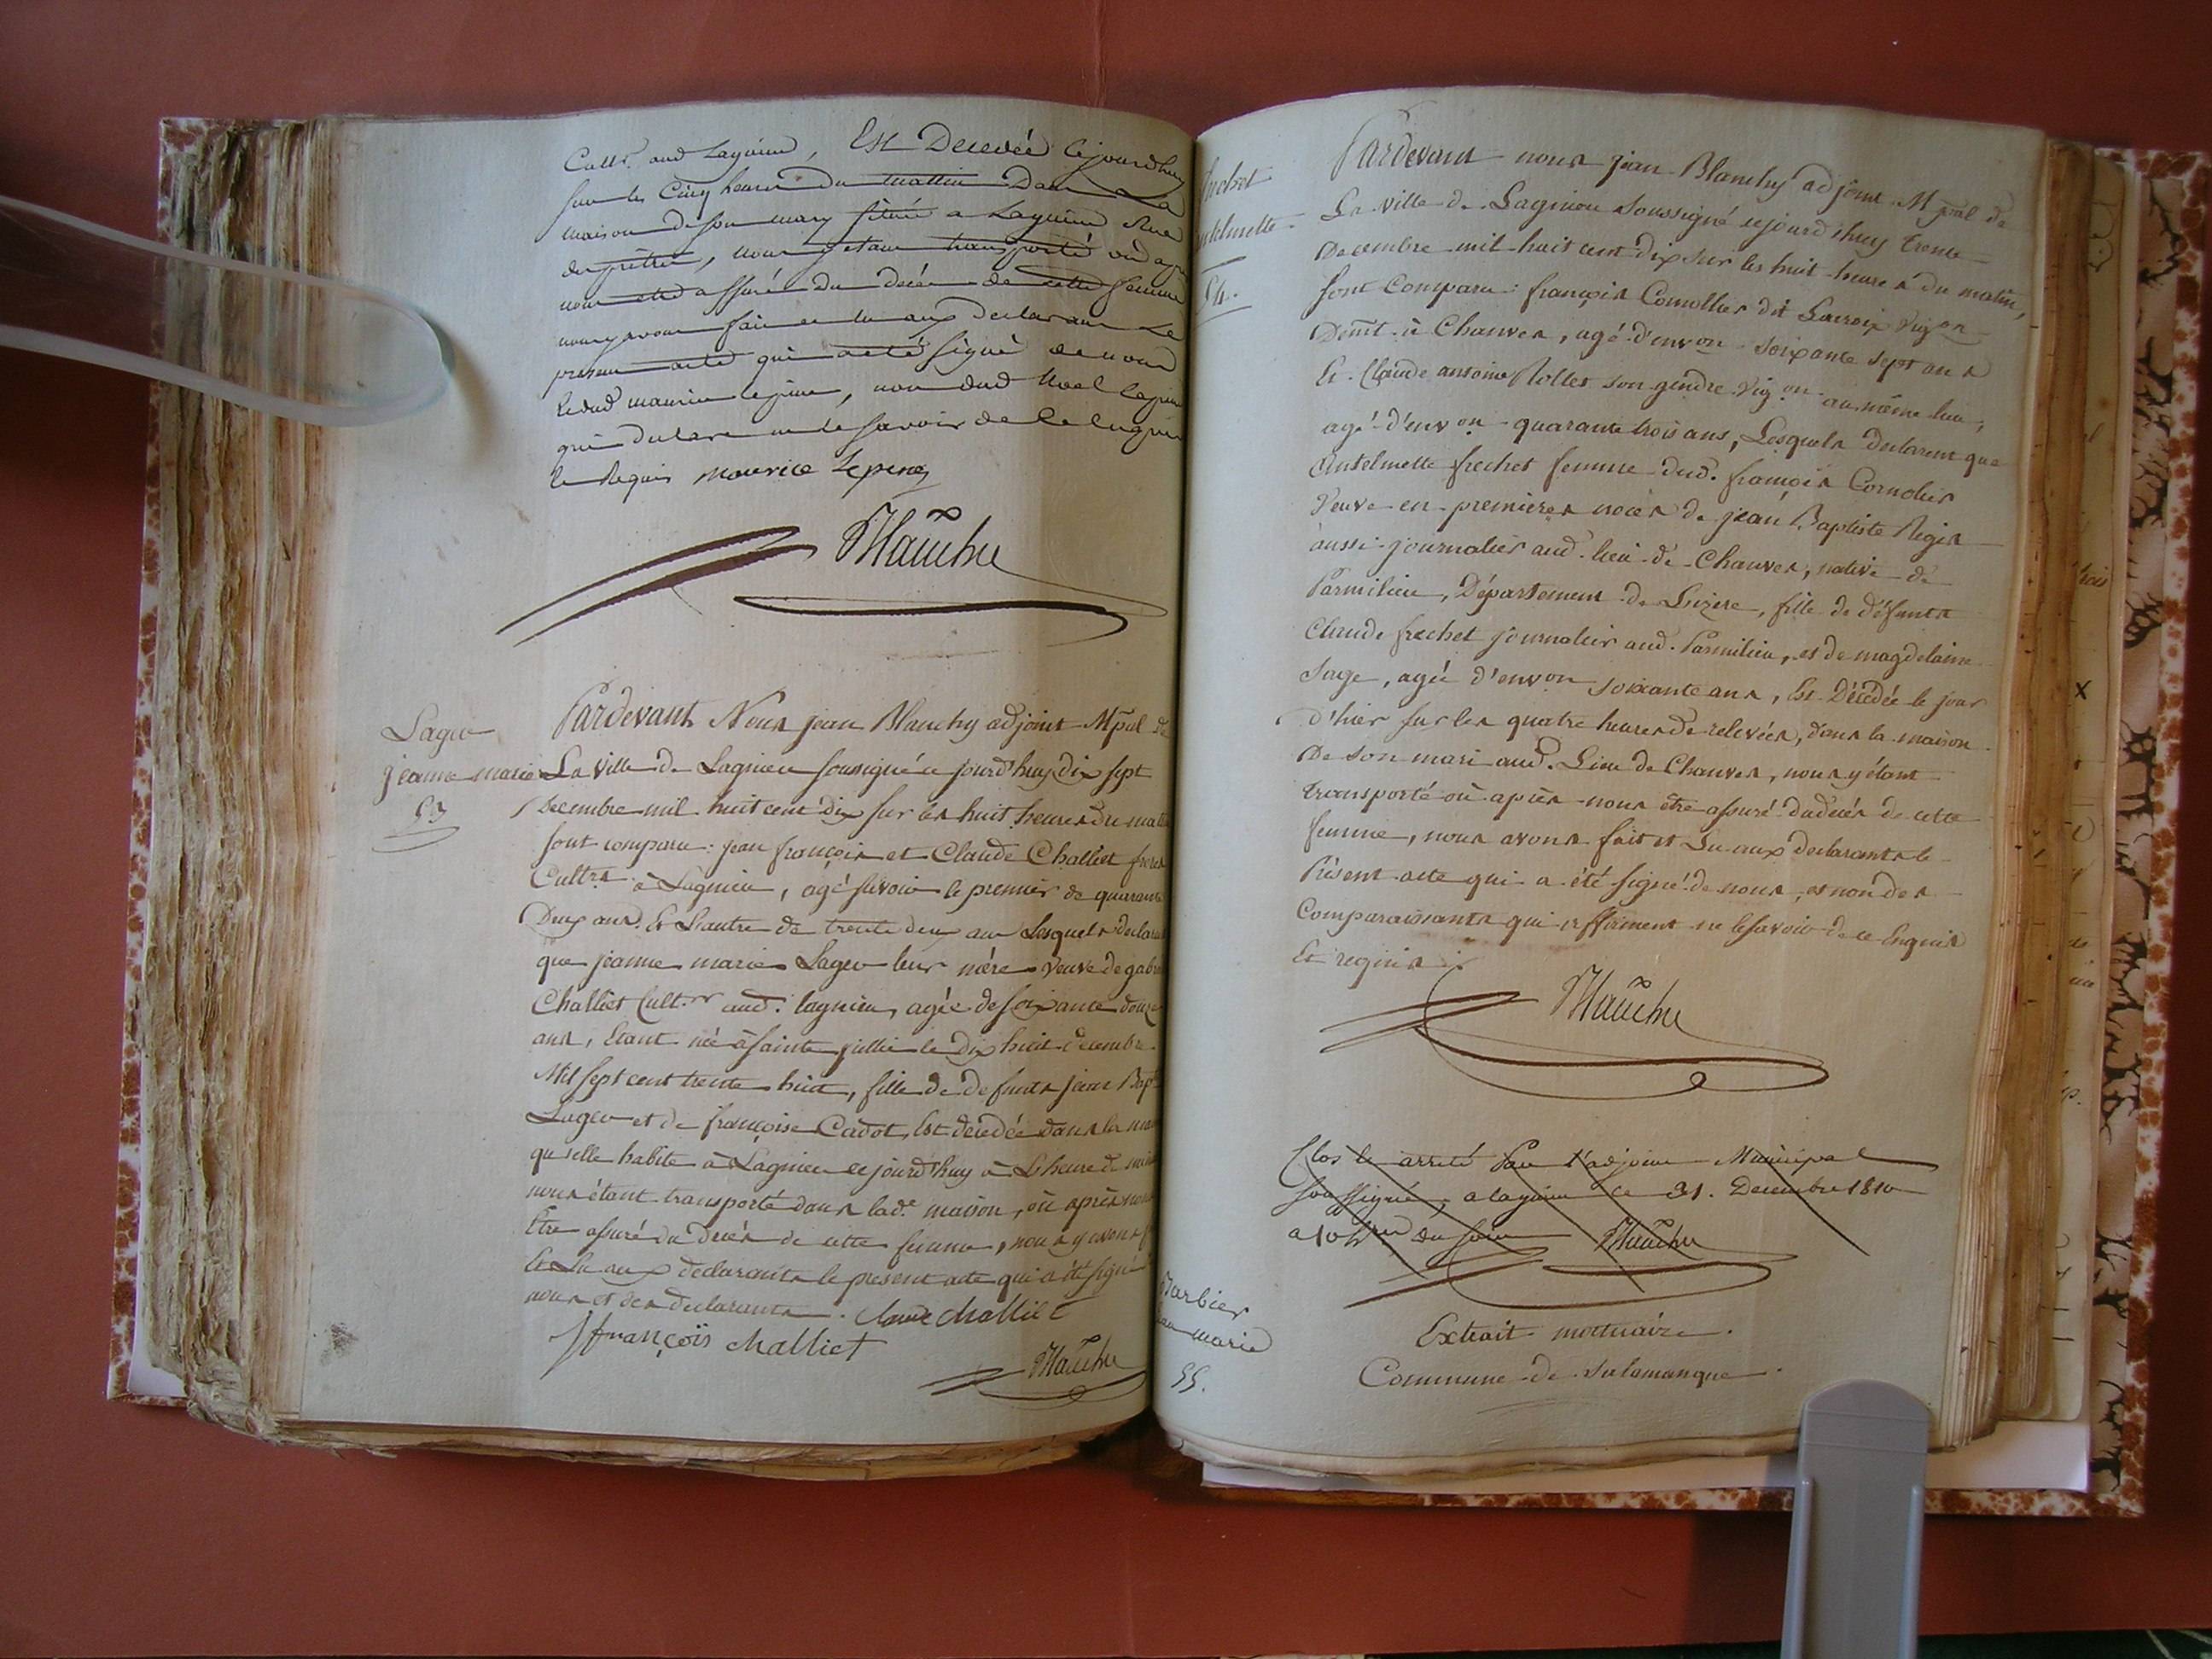 Cultr. aud Lagnieu, Est Decedée cejourdhuy
sur les Cinq heures du mattin Dans La
maison de son mary située a Lagnieu Rue
des prêtres, nous y etant transporté où apr
nous etre assuré du décés de cette femme
nous avons fait et lu aux declarants Le
present acte qui acté signé de nous
et dud maurice lepine, non dud Noel lepine
qui declare ne le savoir de ce enquis
et Requis maurice Lepine
Blanchy
Lageu
jeanne marie
53
Pardevant Nous jean Blanchy adjoint Mpal de
La ville de Lagnieu sousigné ce jourd'huy dix sept
Decembre mil huit cent dix sur les huit heures du matin
sont comparu : jean françois et Claude Challiet freres
Cultrs à Lagnieu, agé savoir le premier de quarante
Deux ans Et L'autre de trente deux ans Lesquels declarent
que jeanne marie Lageu leur mére Veuve de gabriel
Challiet Cultr aud. lagnieu, agée de soixante douze
ans, Etant née à sainte jullie le Dix huit decembre
Mil sept cent trente huit, fille de defunts jean Bapte
Lageu et de françoise Cadot, Est décédée dans la mai
qu'elle habite à Lagnieu cejourd'huy à L'heure de minuit
nous étant transporté dans lade maison, où après nous
Etre assuré du decés de cette femme, nous y avons f
Et Lu aux declarants le present acte qui a été signé d
nous et des declarants. Claude challiet
J françois challiet
Blanchy
frechet
antelmette
54.
Pardevant nous jean Blanchy adjoint Mpal de
La ville de Lagnieu soussigné cejourd'huy trente
Decembre mil huit cent dix sur les huit heures du matin,
sont Comparu : françois Cornollier dit Lacroix vigon
Demt à Chanves, agé d'environ soixante sept ans
Et Claude antoine Rollet son gendre Vigon au même lieu,
agé d'environ quarante trois ans, Lesquels declarent que
Antelmette frechet femme dud. françois Cornolier
Veuve en premieres noces de jean Baptiste Regis
aussi journalier aud. lieu de Chanves, native de
Parmilieu, Département de Lizere, fille de défunts
Claude frechet journalier aud. Parmilieu, et de magdelaine
Sage, agée d'environ soixante ans, Est Décédée le jour
d'hier sur les quatre heures de relevées, dans la maison
De son mari aud. Lieu de Chanves, nous y étant
transporté où après nous être assuré du decés de cette
femme, nous avons fait et Lu aux declarants le
Présent acte qui a été signé de nous, et non des
Comparaissants qui affirment ne le savoir de ce Enquis
Et requis.
Blanchy
Clos et arreté Par L'adjoint Municipal
soussigné, a lagnieu ce 31. Decembre 1810
a 10 heures du soir Blanchy
Barbier
jean marie
55.
Extrait mortuaire.
Commune de Salamanque.